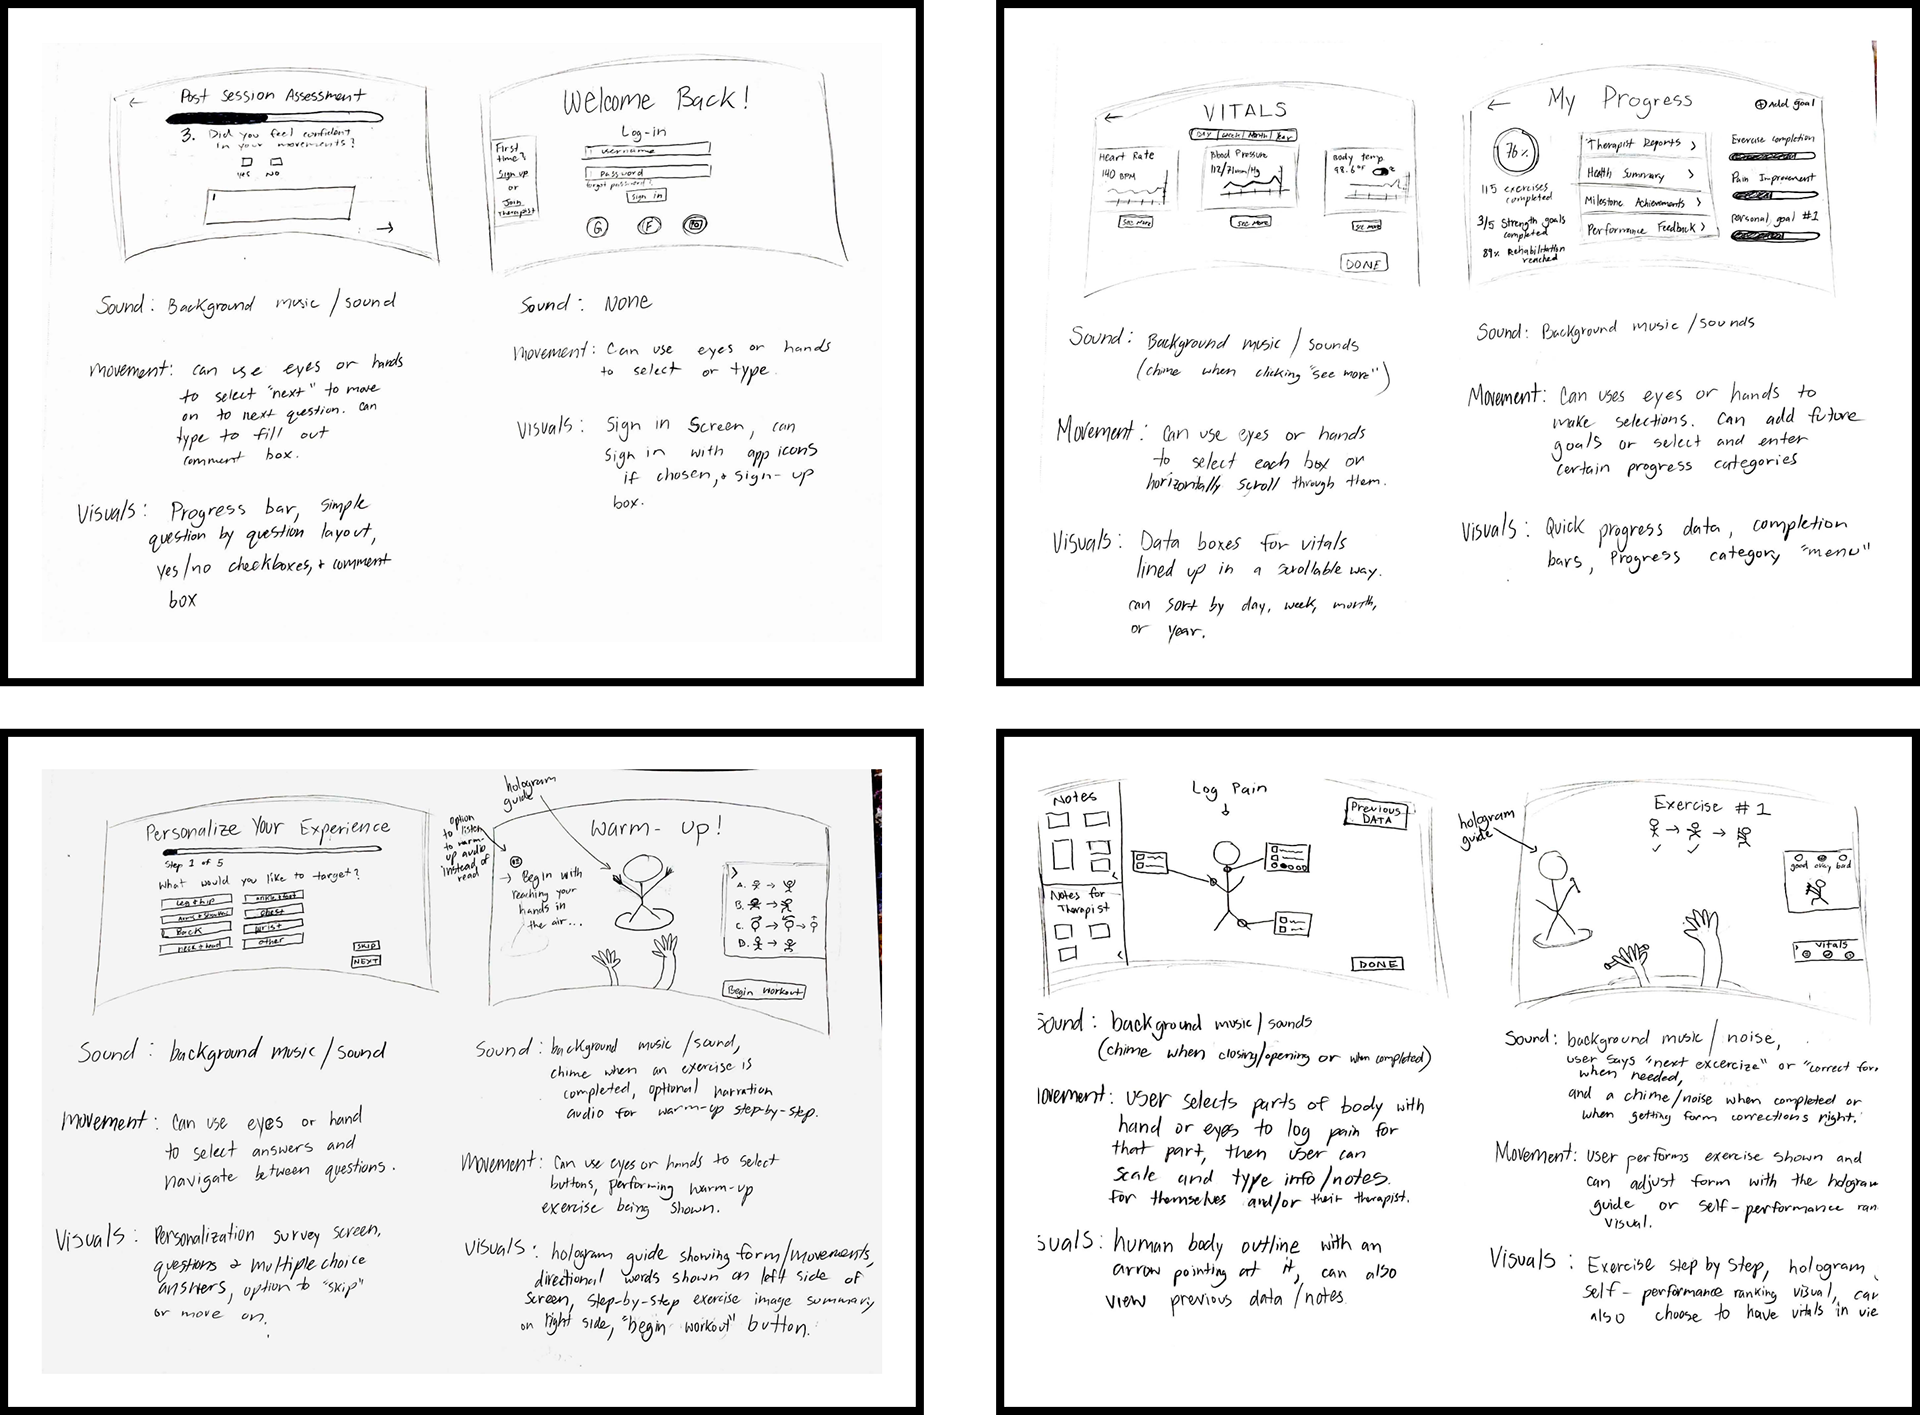 ←
Post Session Assessment
3. Did you feel confident
in your movements?
yes
NO
→
Sound: Background music / sound
Movement: can use eyes or hands
to select "next" to move
on to next question. Can
type to fill out
comment box.
Visuals: Progress bar, simple
question by question layout,
yes/no checkboxes, + comment
box
Welcome Back!
Log-in
username
password
forgot password?
sign in
First
time?
Sign up
or
Join
therapist
G
F
Sound: None
Movement: Can use eyes or hands
to select or type.
Visuals: Sign in Screen, can
sign in with app icons
if chosen, + sign-up
box.
←
VITALS
DAY | Week | Month | Year
Heart Rate
140 BPM
see more
Blood Pressure
112/71mm/Hg
see more
Body temp
98.6°F
see more
DONE
Sound: Background music / sounds
(chime when clicking "see more")
Movement: Can use eyes or hands
to select each box or
horizontally scroll through them.
Visuals: Data boxes for vitals
lined up in a scrollable way.
can sort by day, week, month,
or year.
←
My Progress
Add goal
76%
115 exercises
completed
3/5 Strength goals
completed
89% Rehabilitation
reached
Therapist Reports >
Health Summary >
Milestone Achievements >
Performance Feedback >
Exercise completion
Pain Improvement
personal goal #1
Sound: Background music / sounds
Movement: Can uses eyes or hands to
make selections. Can add future
goals or select and enter
certain progress categories
Visuals: Quick progress data, completion
bars, Progress category "menu"
Personalize Your Experience
Step 1 of 5
What would you like to target?
leg + hip
ankle + foot
arms + shoulder
chest
Back
wrist
neck + head
other
SKIP
NEXT
Sound: background music / sound
Movement: Can use eyes or hand
to select answers and
navigate between questions.
Visuals: Personalization survey screen,
questions & multiple choice
answers, option to "skip"
or move on.
hologram
guide
option
to listen
to warm-
up audio
instead of
read
Warm-up!
→ Begin with
reaching your
hands in
the air...
>
A. →
B. →
C. → →
D. →
Begin workout
Sound: background music / sound,
chime when an exercise is
completed, optional narration
audio for warm-up step-by-step.
Movement: Can use eyes or hands to select
buttons, performing warm-up
exercise being shown.
Visuals: hologram guide showing form/movements,
directional words shown on left side of
screen, step-by-step exercise image summary
on right side, "begin workout" button.
Notes
Notes for
Therapist
Log Pain
↓
Previous
DATA
DONE
Sound: background music / sounds
(chime when closing/opening or when completed)
ovement: User selects parts of body with
hand or eyes to log pain for
that part, then user can
scale and type info/notes.
for themselves and/or their therapist.
suals: human body outline with an
arrow pointing at it, can also
view previous data / notes.
hologram
guide
Exercise #1
→ →
✓ ✓
good okay bad
vitals
Sound: background music / noise,
user says "next excercize" or "correct for
when needed,
and a chime/noise when completed or
when getting form corrections right.
Movement: User performs exercise shown and
can adjust form with the hologram
guide or self-performance ran
visual.
Visuals: Exercise step by step, hologram,
self-performance ranking visual, can
also choose to have vitals in vie